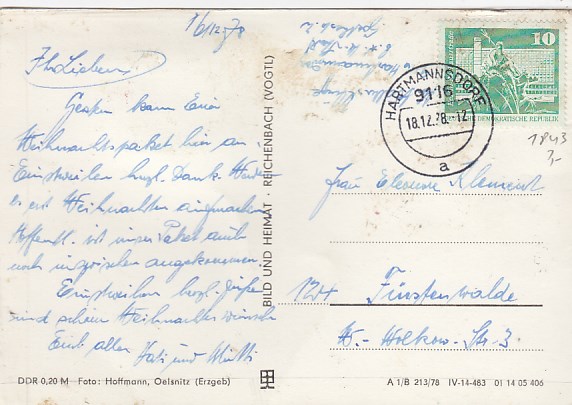 16/12.78
Ihr Lieben
Gestern kam Euer
Weihnachtspaket hier an
Einstweilen herzl. Dank.
Weihnachten aufmachen
Hoffentl. ist unser Paket auch
noch inzwischen angekommen.
Einstweilen herzl. Grüße
und schöne Weihnachten wünsch
Euch allen Vati und Mutti
DDR 0,20 M Foto: Hoffmann, Oelsnitz (Erzgeb)
BILD UND HEIMAT · REICHENBACH (VOGTL)
10
DEMOKRATISCHE REPUBLIK
HARTMANNSDORF
9116
18.12.78.-12
a
1843
7,-
Frau Eleonore Klement
124 Fürstenwalde
W.-Wolkow-Str. 3
A 1/B 213/78 IV-14-483 01 14 05 406